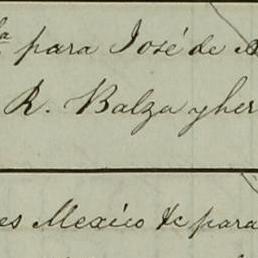 para José de
R. Balza y her
es Mexico &c para